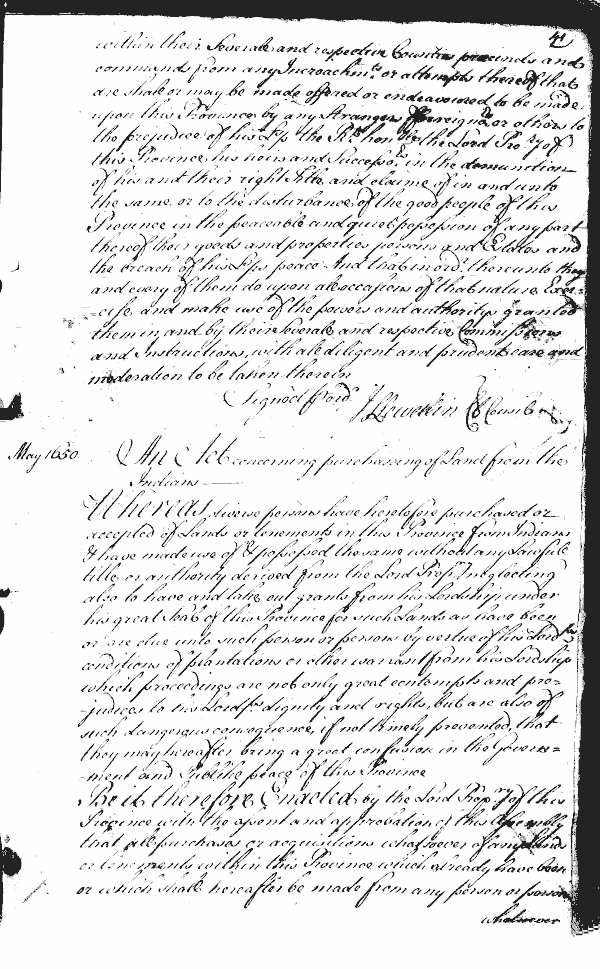 41
within their Severall and respective Counties precincts and
commands from any Incroachm.ts or attempts thereof that
are shall or may be made offered or endeavoured to be made
upon this Province by any Strangers fforreign.rs or others to
the prejudice of his Lp.s the R.t hon.ble the Lord Prop.ry of
this Province his heirs and Success.rs in the
of his and their right title and claime of in and unto
the same or to the disturbance of the good people of this
Province in the peaceable and quiet possession of any part
thereof their goods and properties persons and Estates and
the breach of his Lp.s peace And that in ord.r thereunto they
and every of them do upon all occasions of that nature Exer=
=cise and make use of the powers and authoritys granted
them in and by their Severall and respective Commissions
and Instructions, with all diligent and prudent care and
moderation to be taken therein
Signed p ord.r J Llewellin Cl Consil
May 1650
An Act concerning purchasing of Land from the
Indians
Whereas divers persons have heretofore purchased or
accepted of Lands or tenements in this Province from Indians
& have made use of & possessed the same without any Lawfull
title or authority derived from the Lord Prop.ry neglecting
also to have and take out grants from his Lordship under
his great Seale of this Province for such Lands as have been
or are due unto such person or persons by vertue of his Lord.ps
conditions of plantations or other warrant from his Lordship
which proceedings are not only great contempts and pre=
=judices to his Lordp.s dignity and rights, but are also of
such dangerous consequence, if not timely prevented, that
they may hereafter bring a great confusion in the Govern=
=ment and Publike peace of this Province
Be it therefore Enacted by the Lord Prop.ry of this
Province with the assent and approbation of this Assembly
that all purchases or acquisitions whatsoever of any Lands
or tenements within this Province which already have been
or which shall hereafter be made from any person or persons
whatsoever